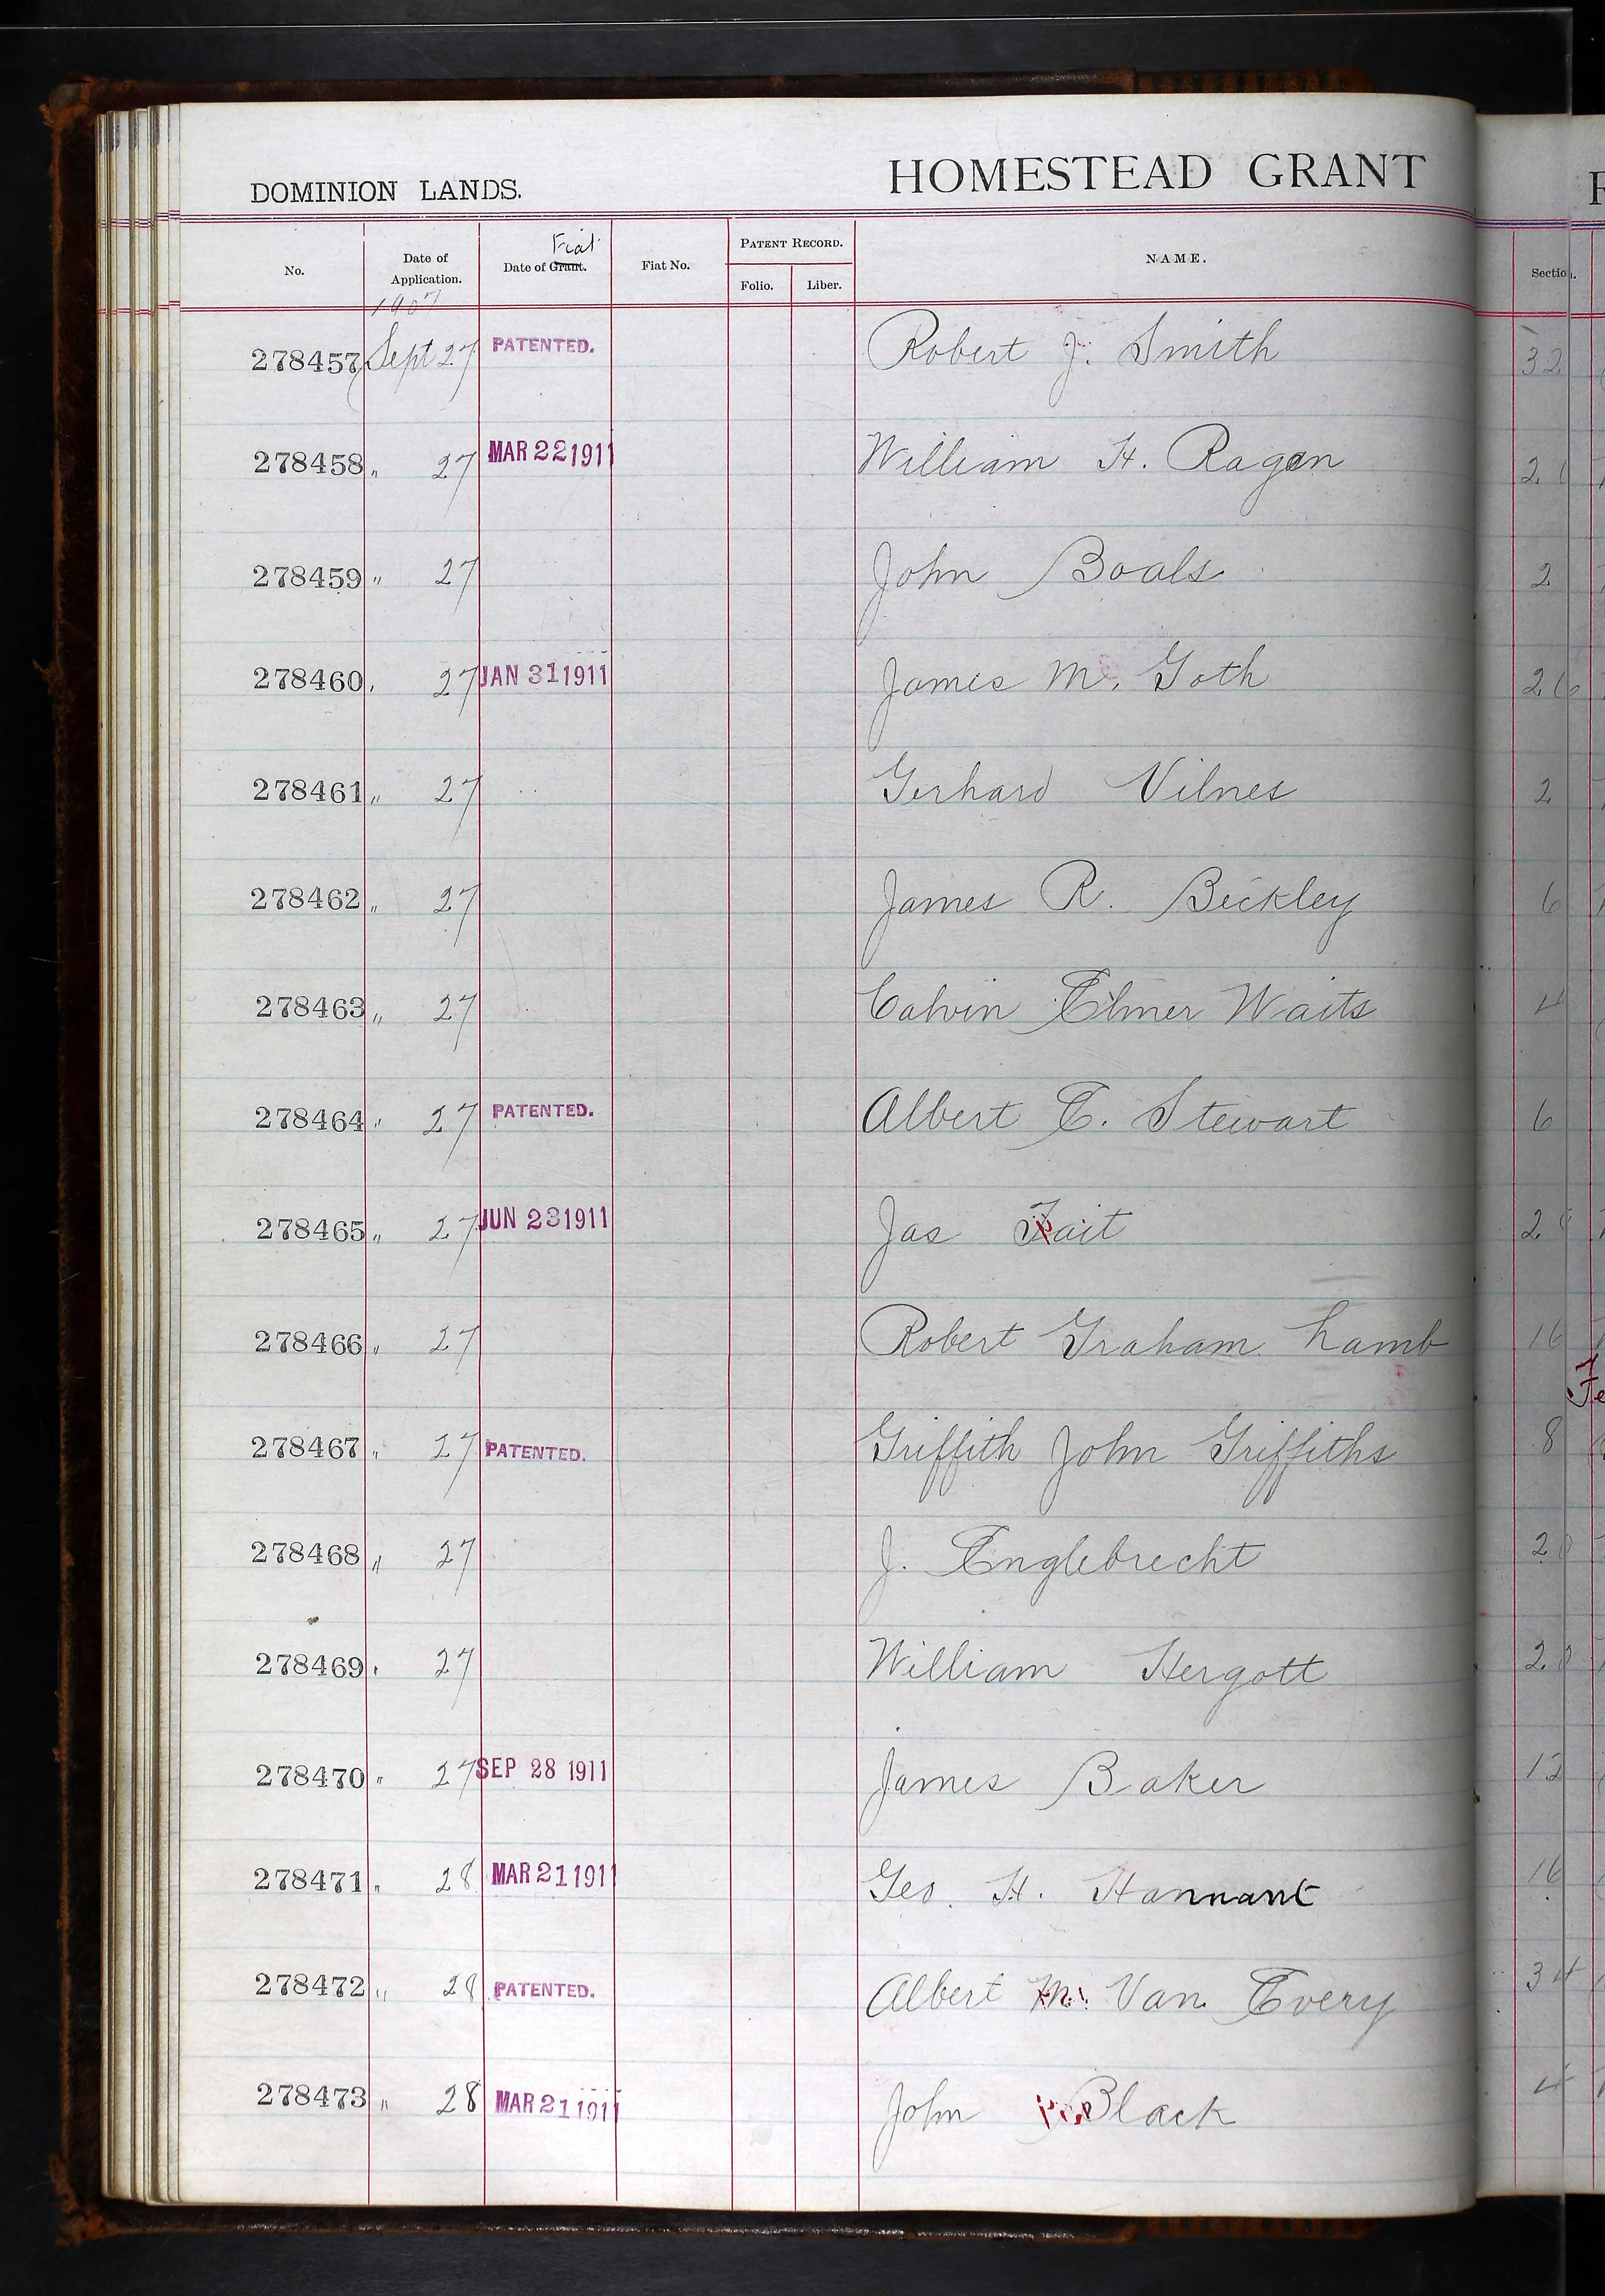 DOMINION LANDS. HOMESTEAD GRANT
No. Date of Application. Date of Grant. Fiat Fiat No. PATENT RECORD. Folio. Liber. NAME. Section.
1907
278457 Sept 27 PATENTED. Robert J. Smith 32
278458 " 27 MAR 22 1911 William H. Ragan
278459 " 27 John Boals 2
278460 " 27 JAN 31 1911 James M. Goth 26
278461 " 27 Gerhard Vilnes 2
278462 " 27 James R. Bickley 6
278463 " 27 Calvin Elmer Waits 4
278464 " 27 PATENTED. Albert E. Stewart 6
278465 " 27 JUN 23 1911 Jas Tait
278466 " 27 Robert Graham Lamb 16
278467 " 27 PATENTED. Griffith John Griffiths 8
278468 " 27 J. Englebrecht
278469 " 27 William Hergott
278470 " 27 SEP 28 1911 James Baker 12
278471 " 28 MAR 21 1911 Geo. H. Hannant 16
278472 " 28 PATENTED. Albert M. Van Every 34
278473 " 28 MAR 21 1911 John Black 4